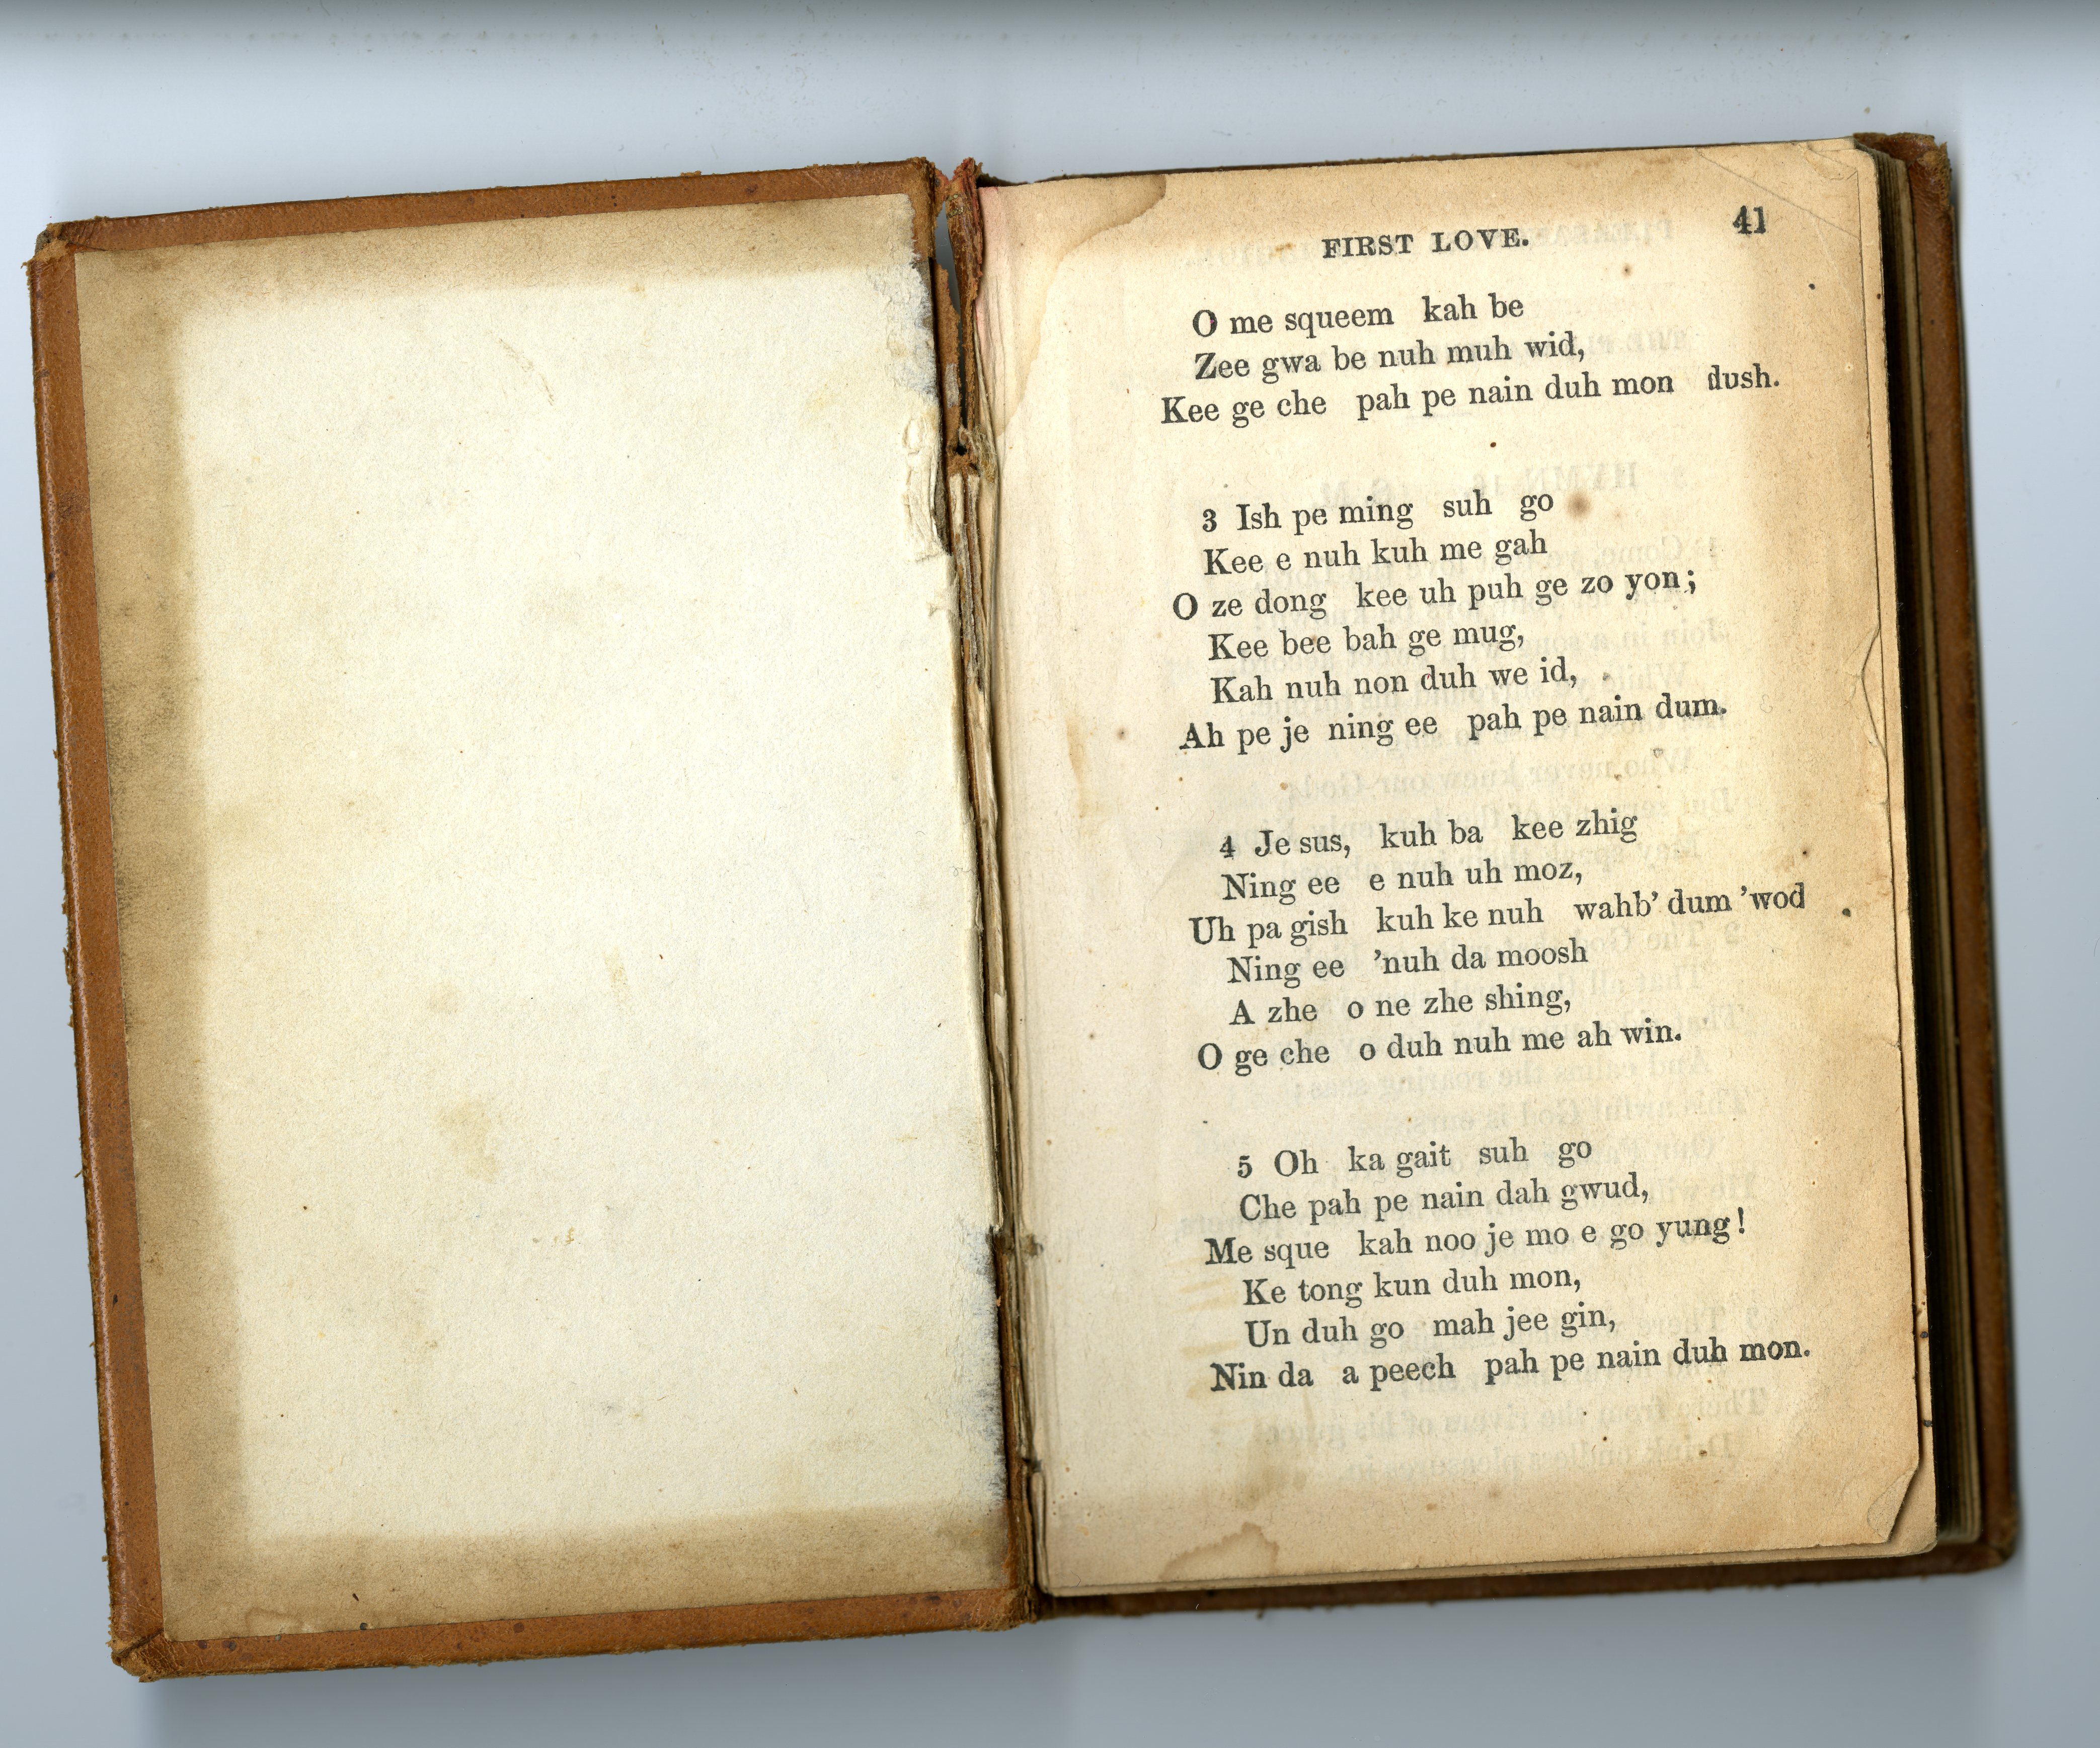 FIRST LOVE. 41
O me squeem kah be
Zee gwa be nuh muh wid,
Kee ge che pah pe nain duh mon dush.
3 Ish pe ming suh go
Kee e nuh kuh me gah
O ze dong kee uh puh ge zo yon;
Kee bee bah ge mug,
Kah nuh non duh we id,
Ah pe je ning ee pah pe nain dum.
4 Je sus, kuh ba kee zhig
Ning ee e nuh uh moz,
Uh pa gish kuh ke nuh wahb' dum 'wod
Ning ee 'nuh da moosh
A zhe o ne zhe shing,
O ge che o duh nuh me ah win.
5 Oh ka gait suh go
Che pah pe nain dah gwud,
Me sque kah noo je mo e go yung!
Ke tong kun duh mon,
Un duh go mah jee gin,
Nin da a peech pah pe nain duh mon.